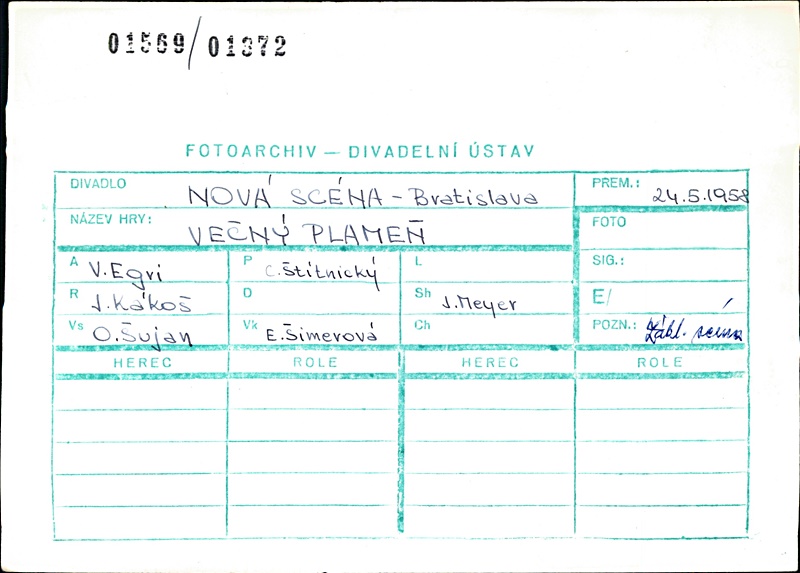 01569/01372
FOTOARCHIV — DIVADELNÍ ÚSTAV
DIVADLO NOVÁ SCÉNA - Bratislava PREM.: 24.5.1958
NÁZEV HRY: VEČNÝ PLAMEŇ FOTO
A V. Egri P C. Štítnický L SIG.:
R J. Kákoš D Sh J. Meyer E/
Vs O. Šujan Vk E. Šimerová Ch POZN.: Zákl. scéna
HEREC ROLE HEREC ROLE